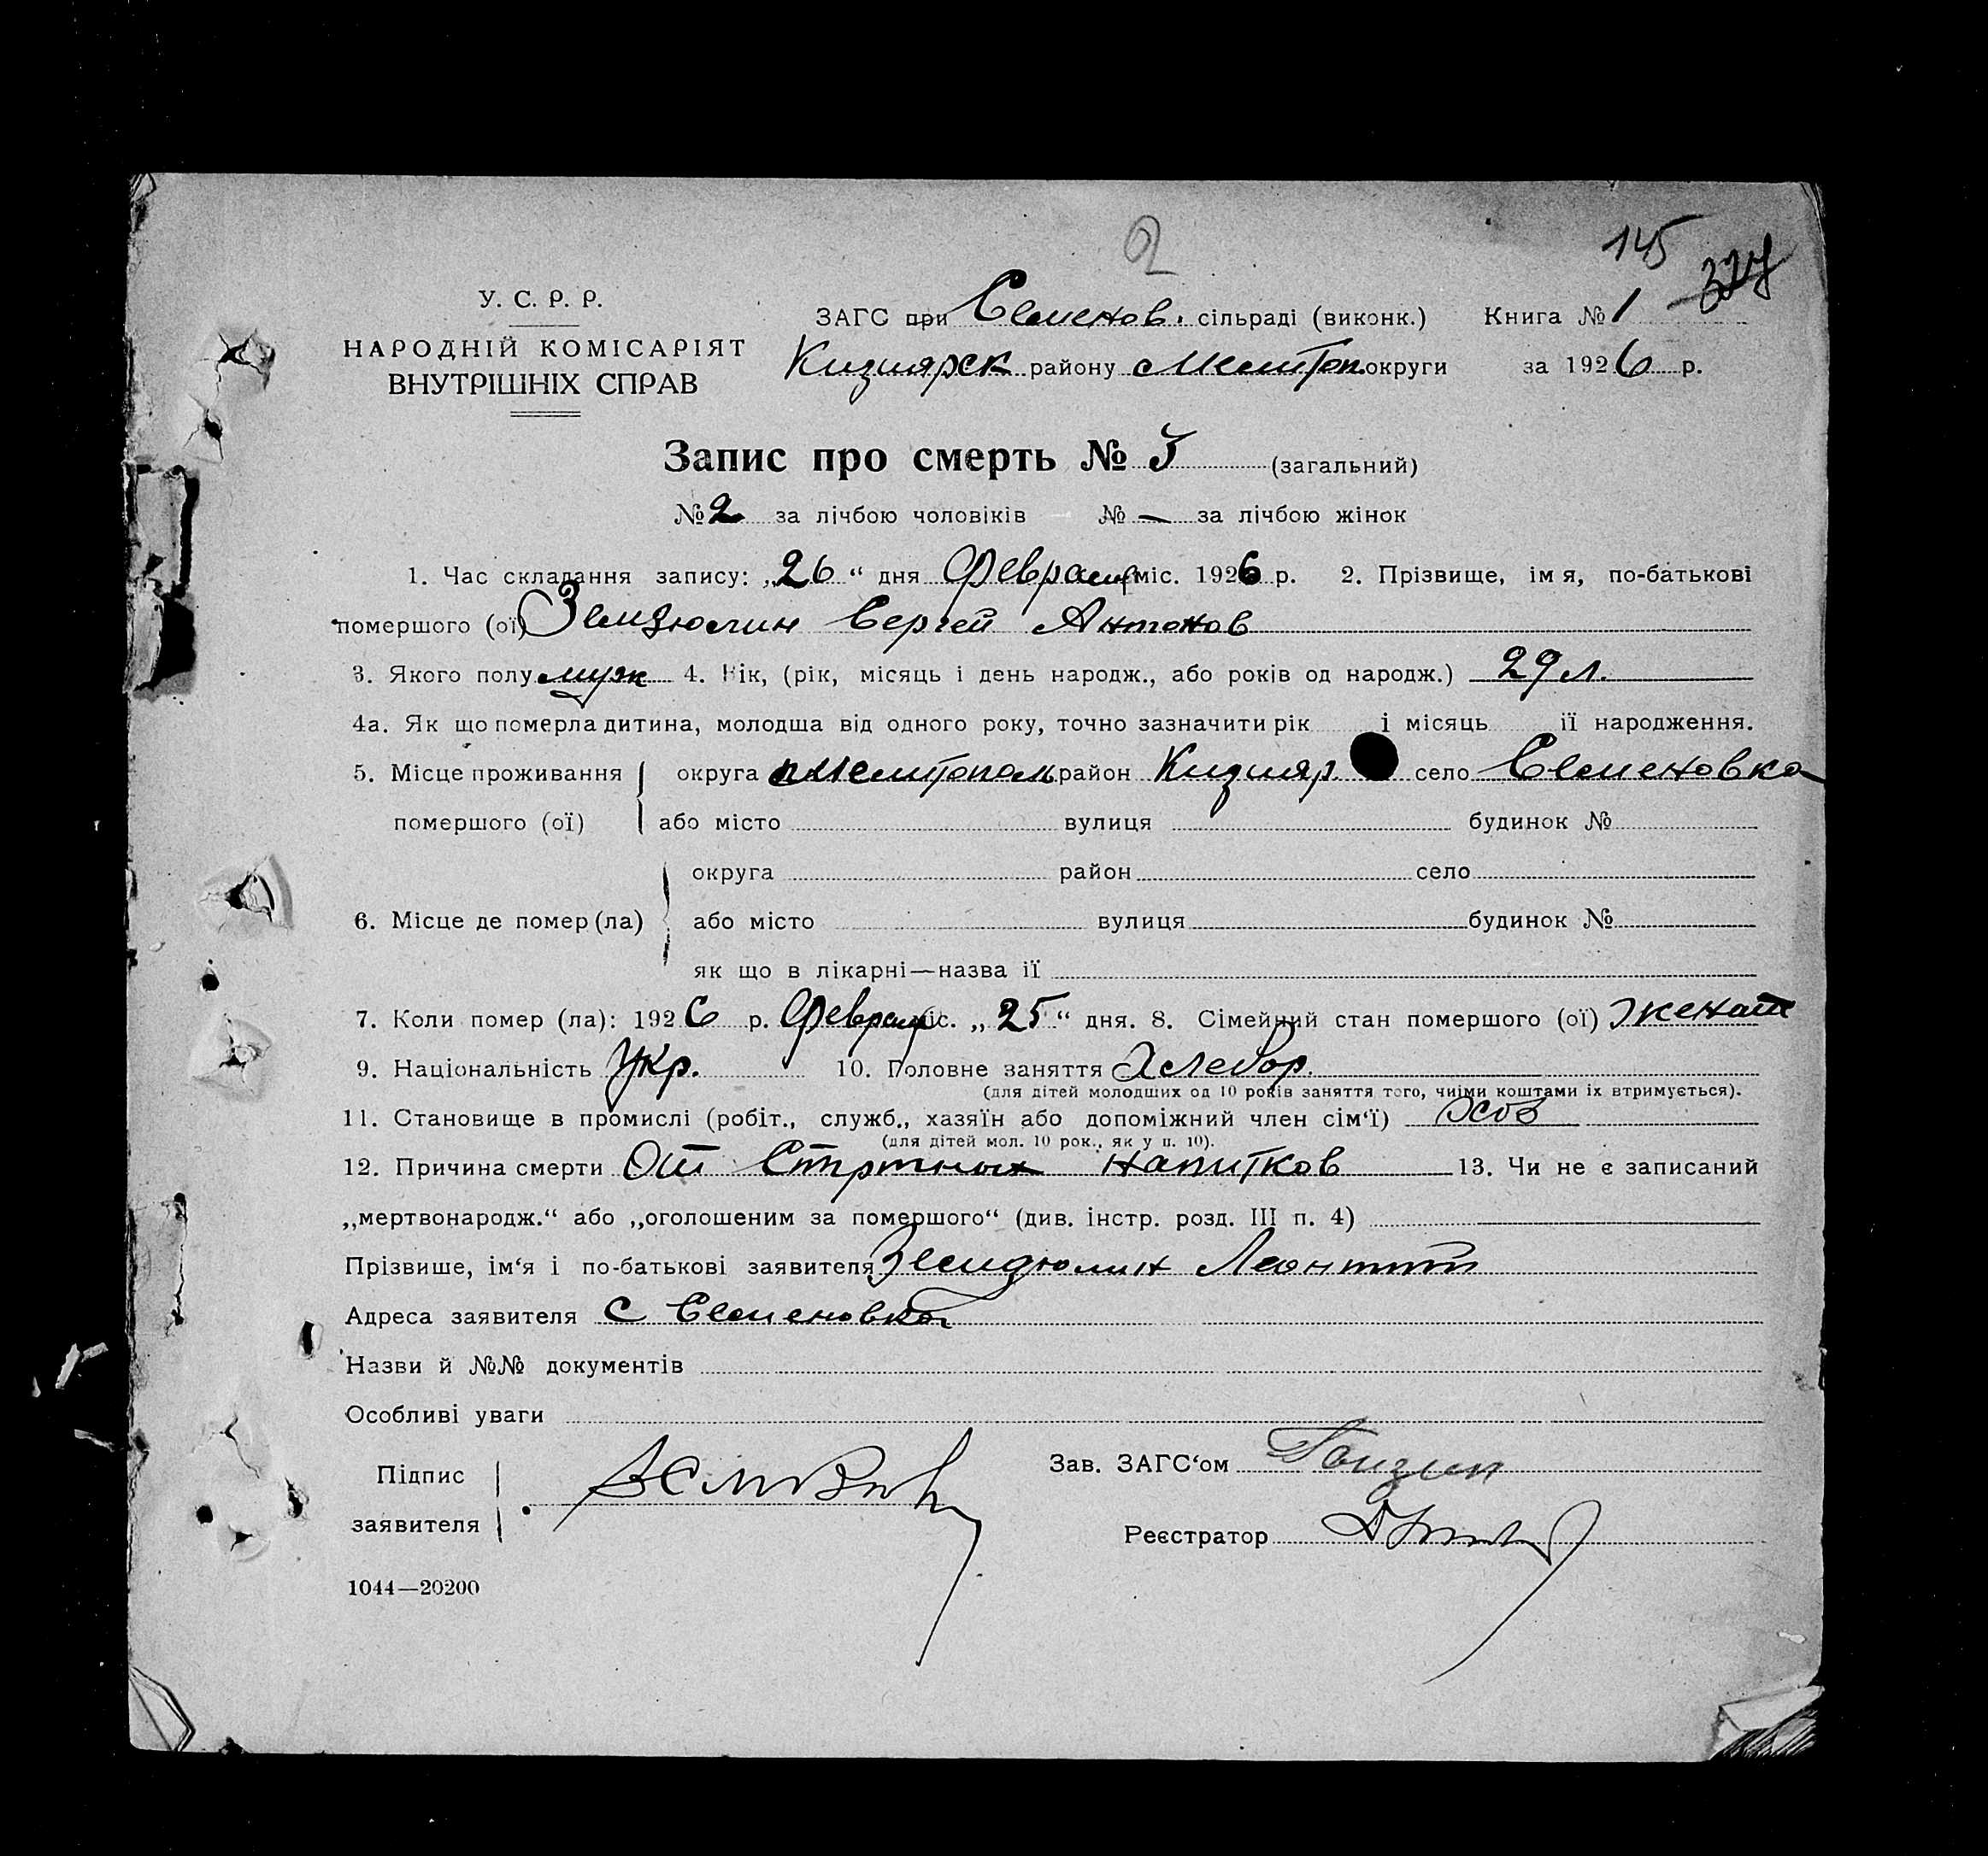 2
145
327
У. С. Р. Р.
НАРОДНІЙ КОМІСАРІЯТ
ВНУТРІШНІХ СПРАВ
ЗАГС при Семенов. сільраді (виконк.) Книга № 1
Кизиярск району Мелитоп округи за 1926 р.
Запис про смерть № 3 (загальний)
№ 2 за лічбою чоловіків № — за лічбою жінок
1. Час складання запису: „26“ дня Февраля міс. 1926 р. 2. Прізвище, імя, по-батькові
помершого (ої) Земзюлин Сергей Антонов
3. Якого полу муж 4. Вік, (рік, місяць і день народж., або років од народж.) 29 л.
4а. Як що померла дитина, молодша від одного року, точно зазначити рік і місяць її народження.
5. Місце проживання округа Мелитополь район Кизияр село Семеновка
помершого (ої) або місто вулиця будинок №
округа район село
6. Місце де помер (ла) або місто вулиця будинок №
як що в лікарні—назва її
7. Коли помер (ла): 1926 р. Февраля міс. „25“ дня. 8. Сімейний стан помершого (ої) женат
9. Національність Укр. 10. Половне заняття Хлебор.
(для дітей молодших од 10 років заняття того, чиїми коштами їх втримується).
11. Становище в промислі (робіт., служб., хазяїн або допоміжний член сім‘ї)
(для дітей мол. 10 рок., як у п. 10).
12. Причина смерти От напитков 13. Чи не є записаний
„мертвонародж.“ або „оголошеним за помершого“ (див. інстр. розд. III п. 4)
Прізвише, ім‘я і по-батькові заявителя Леонтий
Адреса заявителя С Семеновка
Назви й №№ документів
Особливі уваги
Підпис
заявителя
Зав. ЗАГС‘ом
Реєстратор
1044—20200